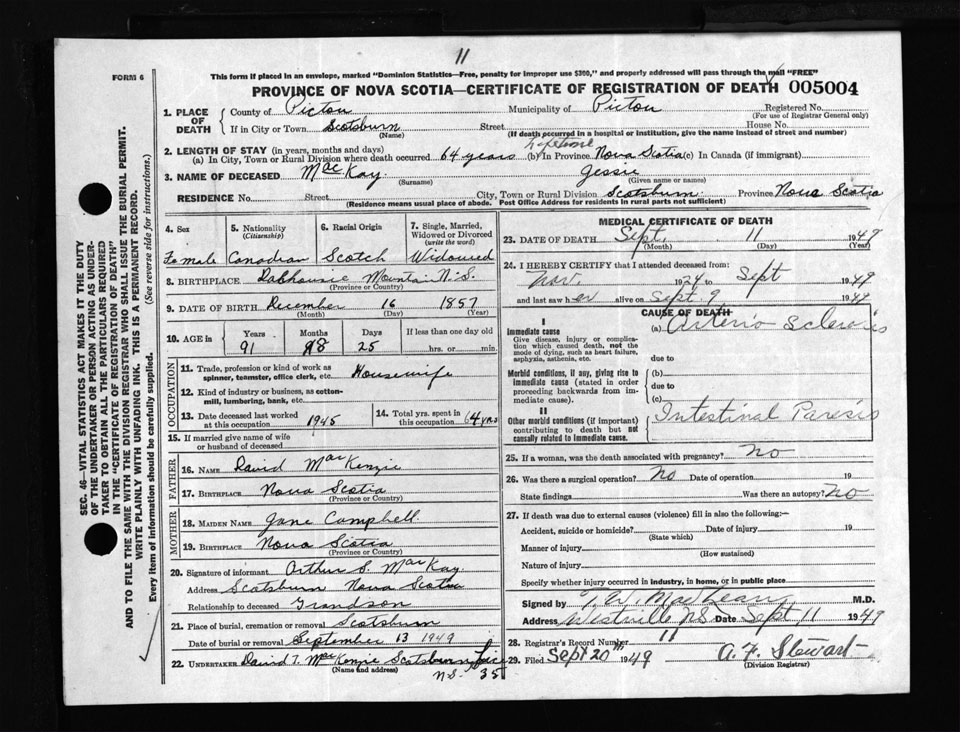 11
FORM 6
This form if placed in an envelope, marked "Dominion Statistics—Free, penalty for improper use $300," and properly addressed will pass through the mail "FREE"
PROVINCE OF NOVA SCOTIA—CERTIFICATE OF REGISTRATION OF DEATH 005004
1. PLACE OF DEATH
County of Pictou Municipality of Pictou Registered No.
(For use of Registrar General only)
If in City or Town Scotsburn Street House No.
(Name) (If death occurred in a hospital or institution, give the name instead of street and number)
2. LENGTH OF STAY (in years, months and days)
(a) In City, Town or Rural Division where death occurred 64 years (b) In Province lifetime Nova Scotia (c) In Canada (if immigrant)
3. NAME OF DECEASED MacKay Jessie
(Surname) (Given name or names)
RESIDENCE No. Street City, Town or Rural Division Scotsburn Province Nova Scotia
(Residence means usual place of abode. Post Office Address for residents in rural parts not sufficient)
4. Sex
Female
5. Nationality
(Citizenship)
Canadian
6. Racial Origin
Scotch
7. Single, Married, Widowed or Divorced
(write the word)
Widowed
8. BIRTHPLACE Dalhousie Mountain N.S.
(Province or Country)
9. DATE OF BIRTH December 16 1857
(Month) (Day) (Year)
10. AGE in
Years Months Days If less than one day old
91 8 25 hrs. or min.
OCCUPATION
11. Trade, profession or kind of work as spinner, teamster, office clerk, etc. Housewife
12. Kind of industry or business, as cotton-mill, lumbering, bank, etc.
13. Date deceased last worked at this occupation 1945
14. Total yrs. spent in this occupation 64 yrs
15. If married give name of wife or husband of deceased
FATHER
16. NAME David MacKenzie
17. BIRTHPLACE Nova Scotia
(Province or Country)
MOTHER
18. MAIDEN NAME Jane Campbell
19. BIRTHPLACE Nova Scotia
(Province or Country)
20. Signature of informant Arthur S. MacKay
Address Scotsburn Nova Scotia
Relationship to deceased Grandson
21. Place of burial, cremation or removal Scotsburn
Date of burial or removal September 13 1949
22. UNDERTAKER David T. MacKenzie Scotsburn
(Name and address)
N.S. 35
MEDICAL CERTIFICATE OF DEATH
23. DATE OF DEATH Sept. 11 1949
(Month) (Day) (Year)
24. I HEREBY CERTIFY that I attended deceased from:
Nov. 1924 to Sept 1949
and last saw her alive on Sept. 9 1949
CAUSE OF DEATH
I
Immediate cause
Give disease, injury or complication which caused death, not the mode of dying, such as heart failure, asphyxia, asthenia, etc.
(a) Arterio Sclerosis
due to
Morbid conditions, if any, giving rise to immediate cause (stated in order proceeding backwards from immediate cause).
(b)
due to
(c)
II
Other morbid conditions (if important) contributing to death but not causally related to immediate cause.
Intestinal Paresis
25. If a woman, was the death associated with pregnancy? No
26. Was there a surgical operation? No Date of operation 19
State findings Was there an autopsy? No
27. If death was due to external causes (violence) fill in also the following:—
Accident, suicide or homicide? Date of injury 19
(State which)
Manner of injury
(How sustained)
Nature of injury
Specify whether injury occurred in industry, in home, or in public place
Signed by T. W. MacLean M.D.
Address Westville N.S. Date Sept 11 1949
28. Registrar's Record Number 11
29. Filed Sept 20th 1949 A. F. Stewart
(Division Registrar)
SEC. 46—VITAL STATISTICS ACT MAKES IT THE DUTY
OF THE UNDERTAKER OR PERSON ACTING AS UNDER-
TAKER TO OBTAIN ALL THE PARTICULARS REQUIRED
IN THE "CERTIFICATE OF REGISTRATION OF DEATH"
AND TO FILE THE SAME WITH THE DIVISION REGISTRAR WHO SHALL ISSUE THE BURIAL PERMIT.
WRITE PLAINLY WITH UNFADING INK. THIS IS A PERMANENT RECORD.
Every item of information should be carefully supplied. (See reverse side for instructions.)